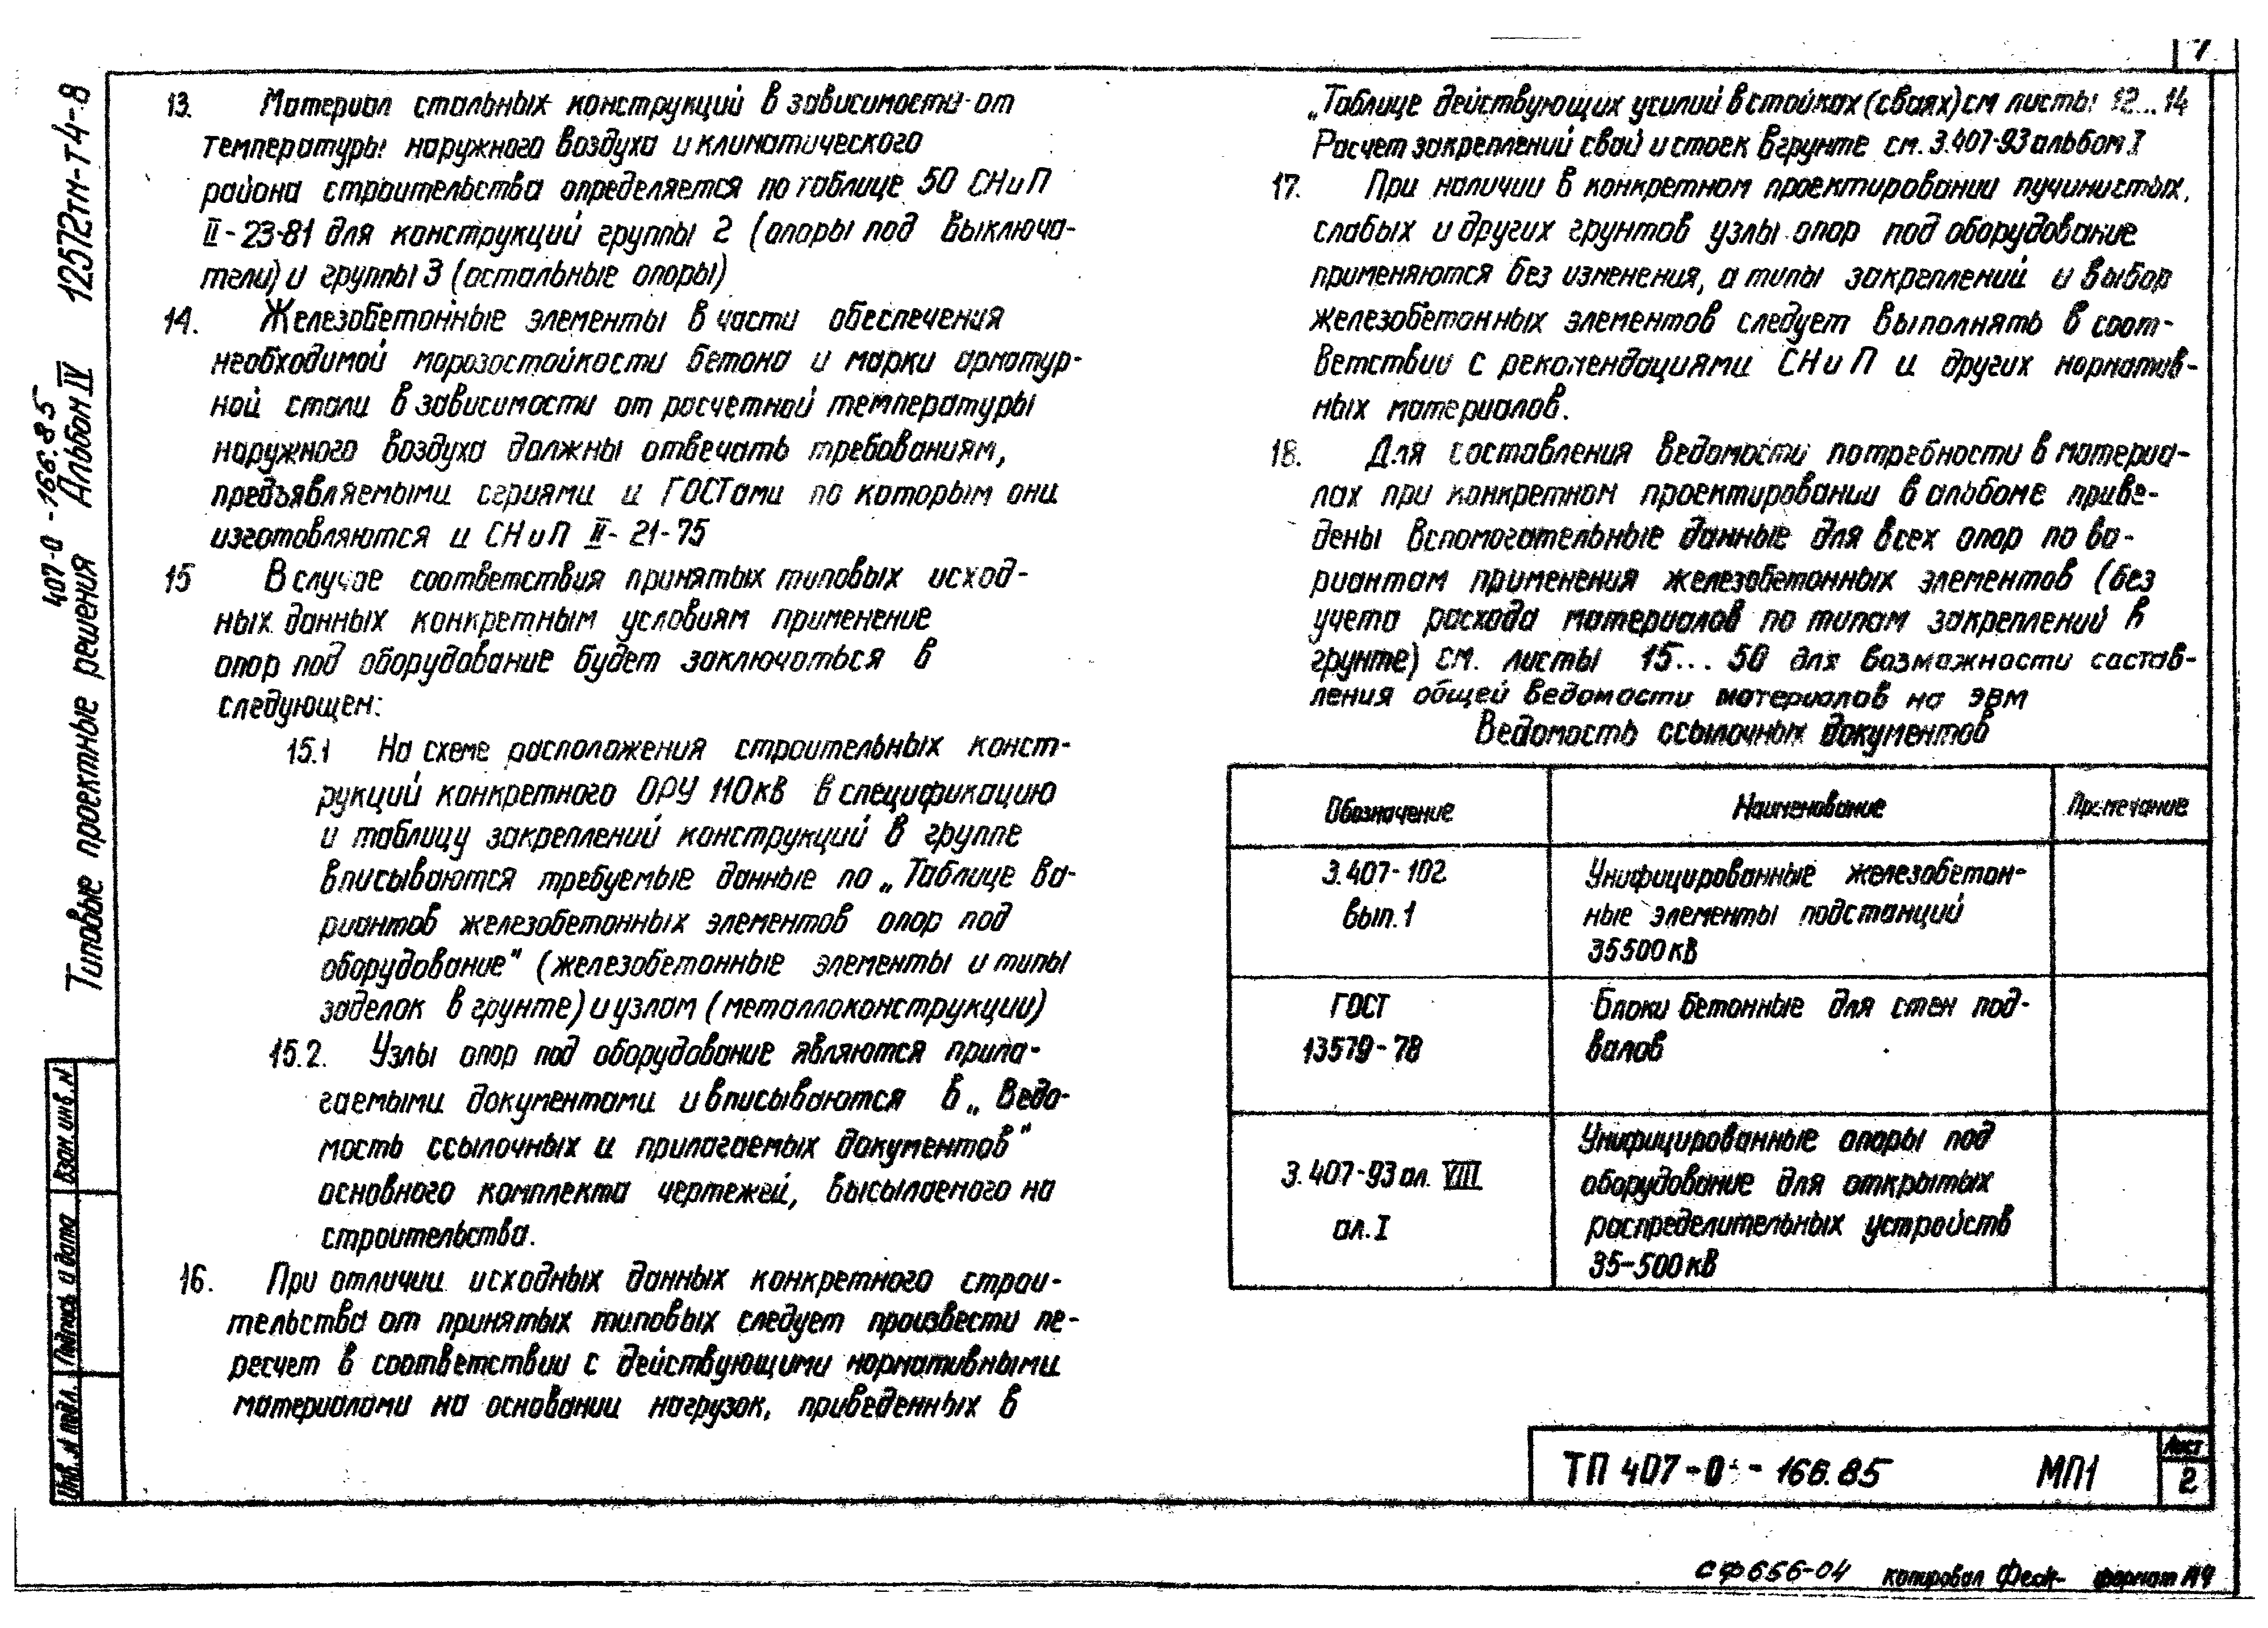 7
13. Материал стальных конструкций в зависимости от
температуры наружного воздуха и климатического
района строительства определяется по таблице 50 СНиП
II-23-81 для конструкций группы 2 (опоры под выключа-
тели) и группы 3 (остальные опоры)
14. Железобетонные элементы в части обеспечения
необходимой морозостойкости бетона и марки арматур-
ной стали в зависимости от расчетной температуры
наружного воздуха должны отвечать требованиям,
предъявляемыми сериями и ГОСТами по которым они
изготовляются и СНиП II-21-75
15 В случае соответствия принятых типовых исход-
ных данных конкретным условиям применение
опор под оборудование будет заключаться в
следующем:
15.1 На схеме расположения строительных конст-
рукций конкретного ОРУ 110 кВ в спецификацию
и таблицу закреплений конструкций в группе
вписываются требуемые данные по „Таблице ва-
риантов железобетонных элементов опор под
оборудование" (железобетонные элементы и типы
заделок в грунте) и узлам (металлоконструкции)
15.2. Узлы опор под оборудование являются прила-
гаемыми документами и вписываются в „Ведо-
мость ссылочных и прилагаемых документов"
основного комплекта чертежей, высылаемого на
строительства.
16. При отличии исходных данных конкретного строи-
тельства от принятых типовых следует произвести пе-
ресчет в соответствии с действующими нормативными
материалами на основании нагрузок, приведенных в
„Таблице действующих усилий в стойках (сваях) см листы 12...14
Расчет закреплений свай и стоек в грунте см. 3.407-93 альбом I
17. При наличии в конкретном проектировании пучинистых,
слабых и других грунтов узлы опор под оборудование
применяются без изменения, а типы закреплений и выбор
железобетонных элементов следует выполнять в соот-
ветствии с рекомендациями СНиП и других норматив-
ных материалов.
18. Для составления ведомости потребности в материа-
лах при конкретном проектировании в альбоме приве-
дены вспомогательные данные для всех опор по ва-
риантам применения железобетонных элементов (без
учета расхода материалов по типам закреплений в
грунте) см. листы 15...50 для возможности состав-
ления общей ведомости материалов на ЭВМ
Ведомость ссылочных документов
Обозначение Наименование Примечание
3.407-102 Унифицированные железобетон-
вып.1 ные элементы подстанций
35 500 кВ
ГОСТ Блоки бетонные для стен под-
13579-78 валов
Унифицированные опоры под
3.407-93 ал. VIII оборудование для открытых
ал. I распределительных устройств
35-500 кВ
ТП 407-0-166.85 МП1
Лист
2
СФ656-04 копировал формат А4
407-0-166.85
Типовые проектные решения Альбом IV 12572тм-т4-8
Взам. инв. N
Подпись и дата
Инв. N подл.